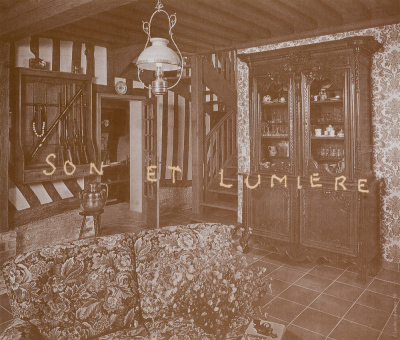 SON ET LUMIERE